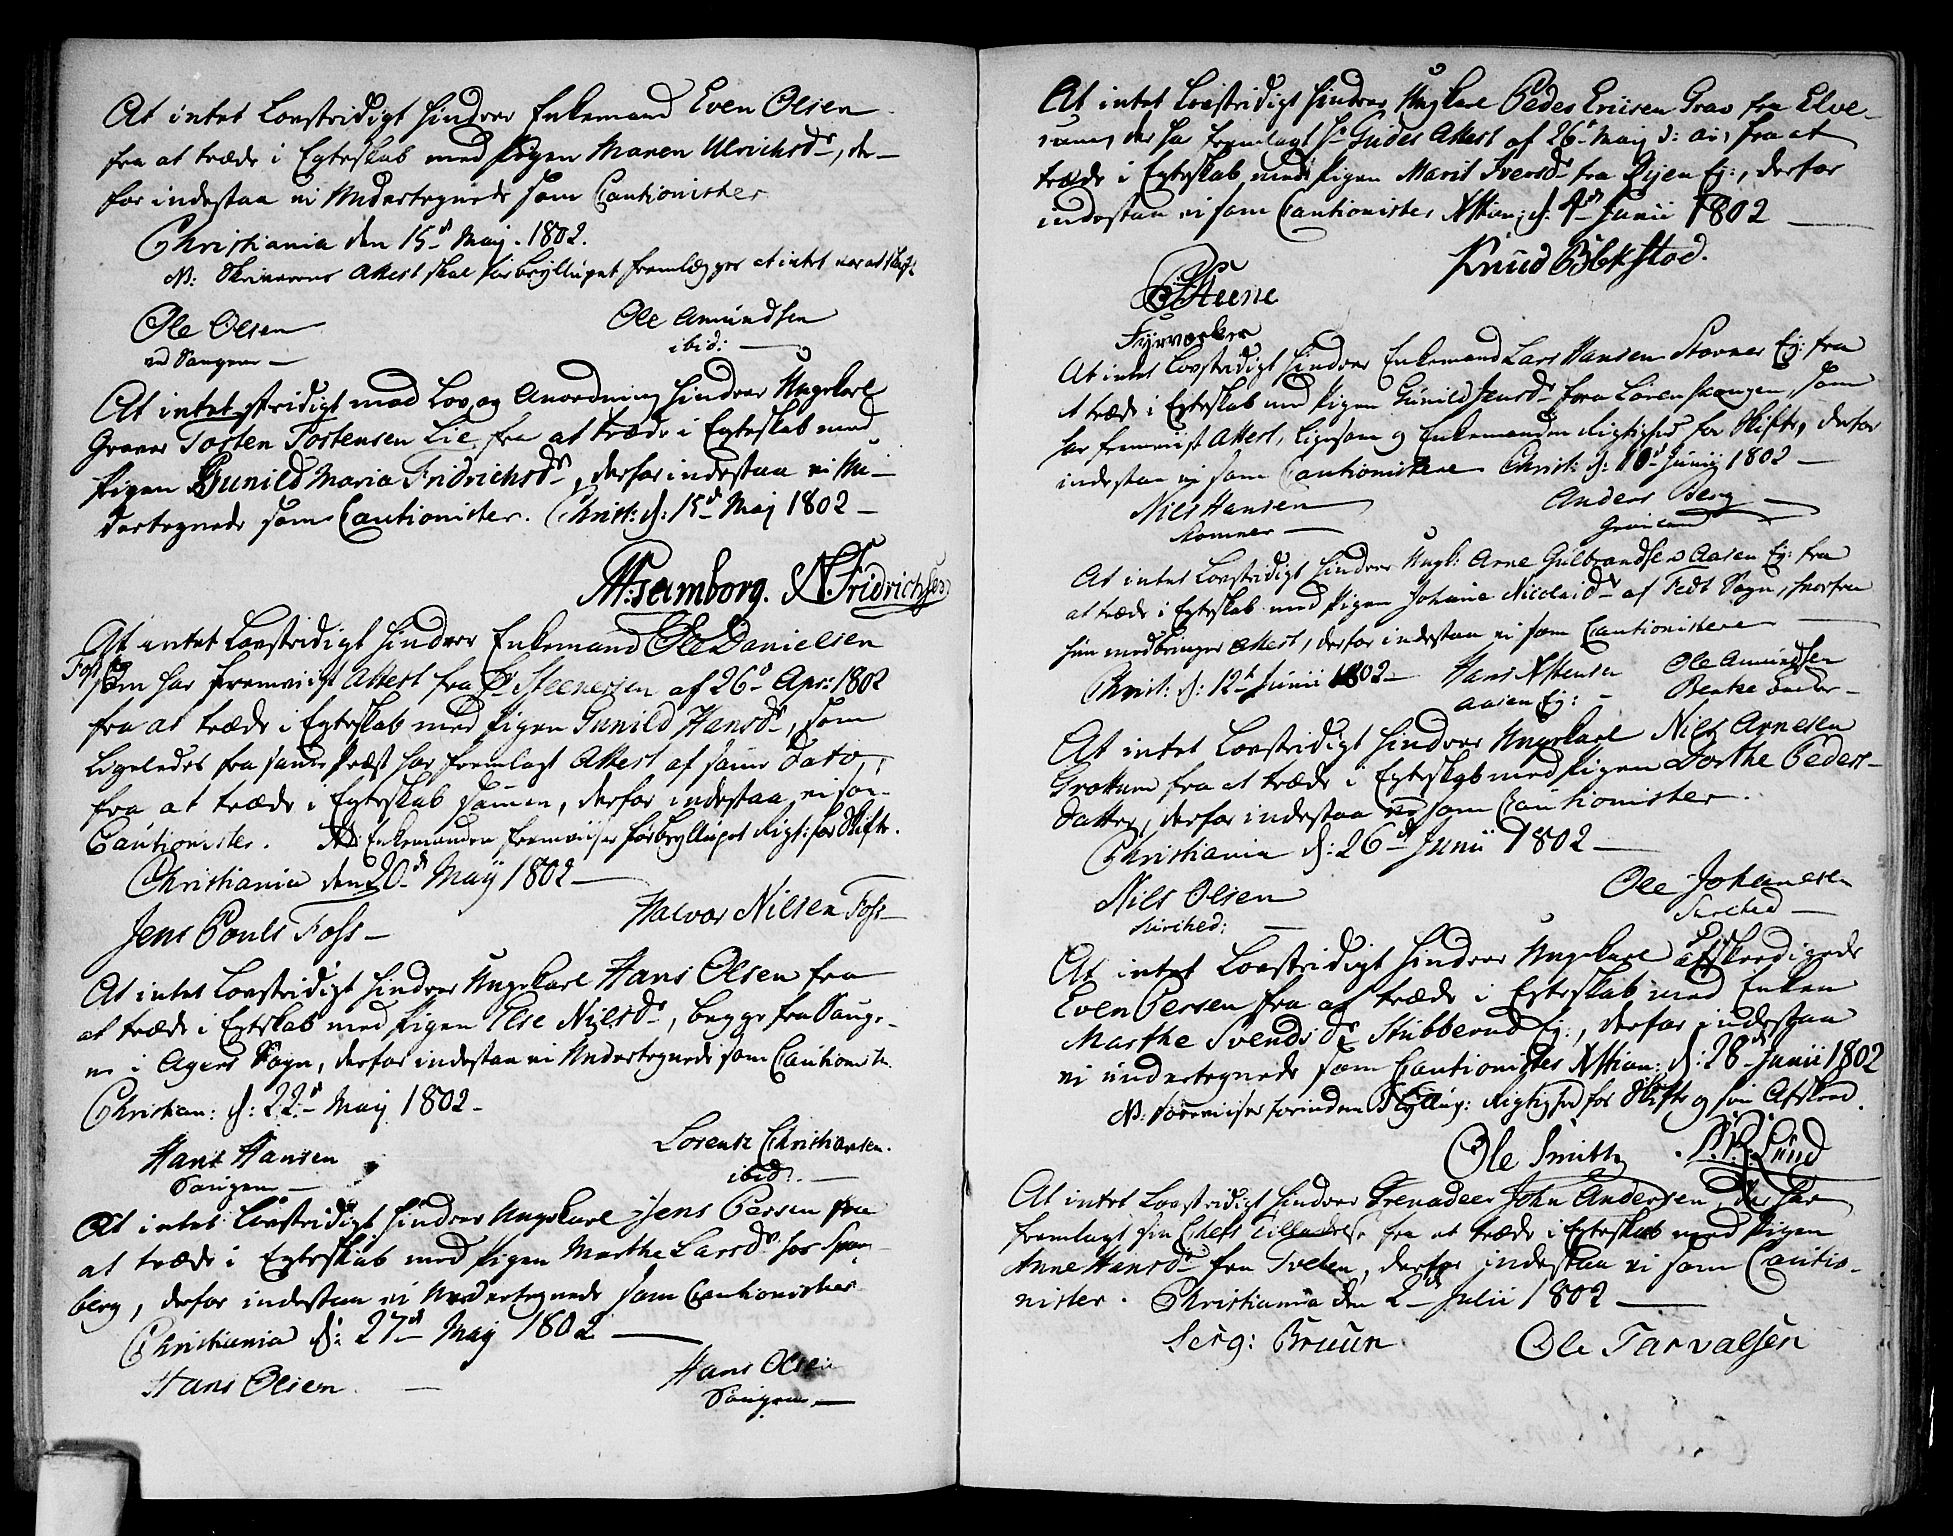 At intet Lovstridigt hindrer Enkemand Even Olsen
fra at træde i Egteskab med Pigen Maren Ulrichsdr, der-
for indestaa vi Undertegnede som Cautionister
Christiania den 15d Maj 1802.
NB: Skriverens Attest skal før Brylluppet fremlægges at intet var at skifte
Ole Olsen
ved Saugene
Ole Amundsen
ibid:
At intet stridigt mod Lov og Anordning hindrer Ungekarl
Graver Tosten Tostensen Lie fra at træde i Egteskab med
Pigen Gunild Maria Fridrichsdr, derfor indestaa vi Un-
dertegnede som Cautionister. Christ: d: 15d Maj 1802
N Fridrichsen
At intet Lovstridigt hindrer Enkemand Ole Danielsen
Foss som har fremviist Attest fra Hr Steenersen af 26d Apr: 1802
fra at træde i Egteskab med Pigen Gunild Hansdr, som
ligeledes fra samme Præst har fremlagt Attest af samme Dato,
fra at træde i Egteskab sammen, derfor indestaa vi som
Cautionister. NB Enkemanden fremviiser før Brylluppet Rigt: for Skifte.
Christiania den 20d Maij 1802
Jens Pouls Foss
Halvor Nilsen Foss
At intet Lovstridigt hindrer Ungekarl Hans Olsen fra
at træde i Egteskab med Pigen Else Nilsdr, begge fra Sauge-
ne i Agers Sogn, derfor indestaa vi Undertegnede som Cautionister
Christian: d: 22d Maj 1802
Hans Hansen
Saugene
Lorentz Christiansen.
ibid.
At intet Lovstridigt hindrer Ungekarl Jens Persen fra
at træde i Egteskab med Pigen Marthe Larsdr hos Spar-
berg, derfor indestaa vi Undertegnede som Cautionister
Christiania d: 27d Maj 1802
Hans Olsen
Hans Olsen
Saugene
At intet Lovstridigt hindrer Ungkarl Peder Ericsen Grav fra Elve-
rum, der har fremlagt Hr Gudes Attest af 26d Maij d: a: fra at
træde i Egteskab med Pigen Marit Iversdr fra Ryen Ej:, derfor
indestaa vi som Cautionister Xtian: d: 4d Junii 1802
Knud Blekstad.
Steene
Fyrværker
At intet Lovstridigt hindrer Enkemand Lars Hansen Stovner Ej: fra
at træde i Egteskab med Pigen Gunild Jensdr fra Lørenskougen, som
har fremviist Attest, ligesom og Enkemanden Rigtighed for Skifte, derfor
indestaa vi som Cautionistere Christ: d: 10d Junij 1802
Nils Hansen
Stovner
Anders Berg
At intet Lovstridigt hindrer Ungk: Arne Gulbrandsen Aasen Ej: fra
at træde i Egteskab med Pigen Johane Nicolaidr af Fedt Sogn, hvorfra
hun medbringer Attest, derfor indestaa vi som Cautionistere
Christ: d: 12t Junii 1802
Hans Xstensen
Aasen Ej:
Ole Amundsen
At intet Lovstridigt hindrer Ungekarl Nils Arnesen
Grottum fra at træde i Egteskab med Pigen Dorthe Peders-
datter, derfor indestaa vi som Cautionister.
Christiania d: 26d Junii 1802
Nils Olsen
Ole Johanesen
At intet Lovstridigt hindrer Ungekarl afskeedigede
Even Persen fra at træde i Egteskab med Enken
Marthe Svendsdr Stubberud Ej:, derfor indestaa
vi undertegnede som Cautionister Xtian: d: 28d Junii 1802
NB: foreviiser forinden Bryllup: Rigtighed for Skifte og sin Afskeed.
Ole Smith
Lund
At intet Lovstridigt hindrer Grenadeer John Andersen, der har
fremlagt sin Chefs Tilladelse fra at træde i Egteskab med Pigen
Anne Hansdr fra Tveten, derfor indestaa vi som Cautio-
nister. Christiania den 2d Julii 1802
Serg: Bruun
Ole Tarvalsen